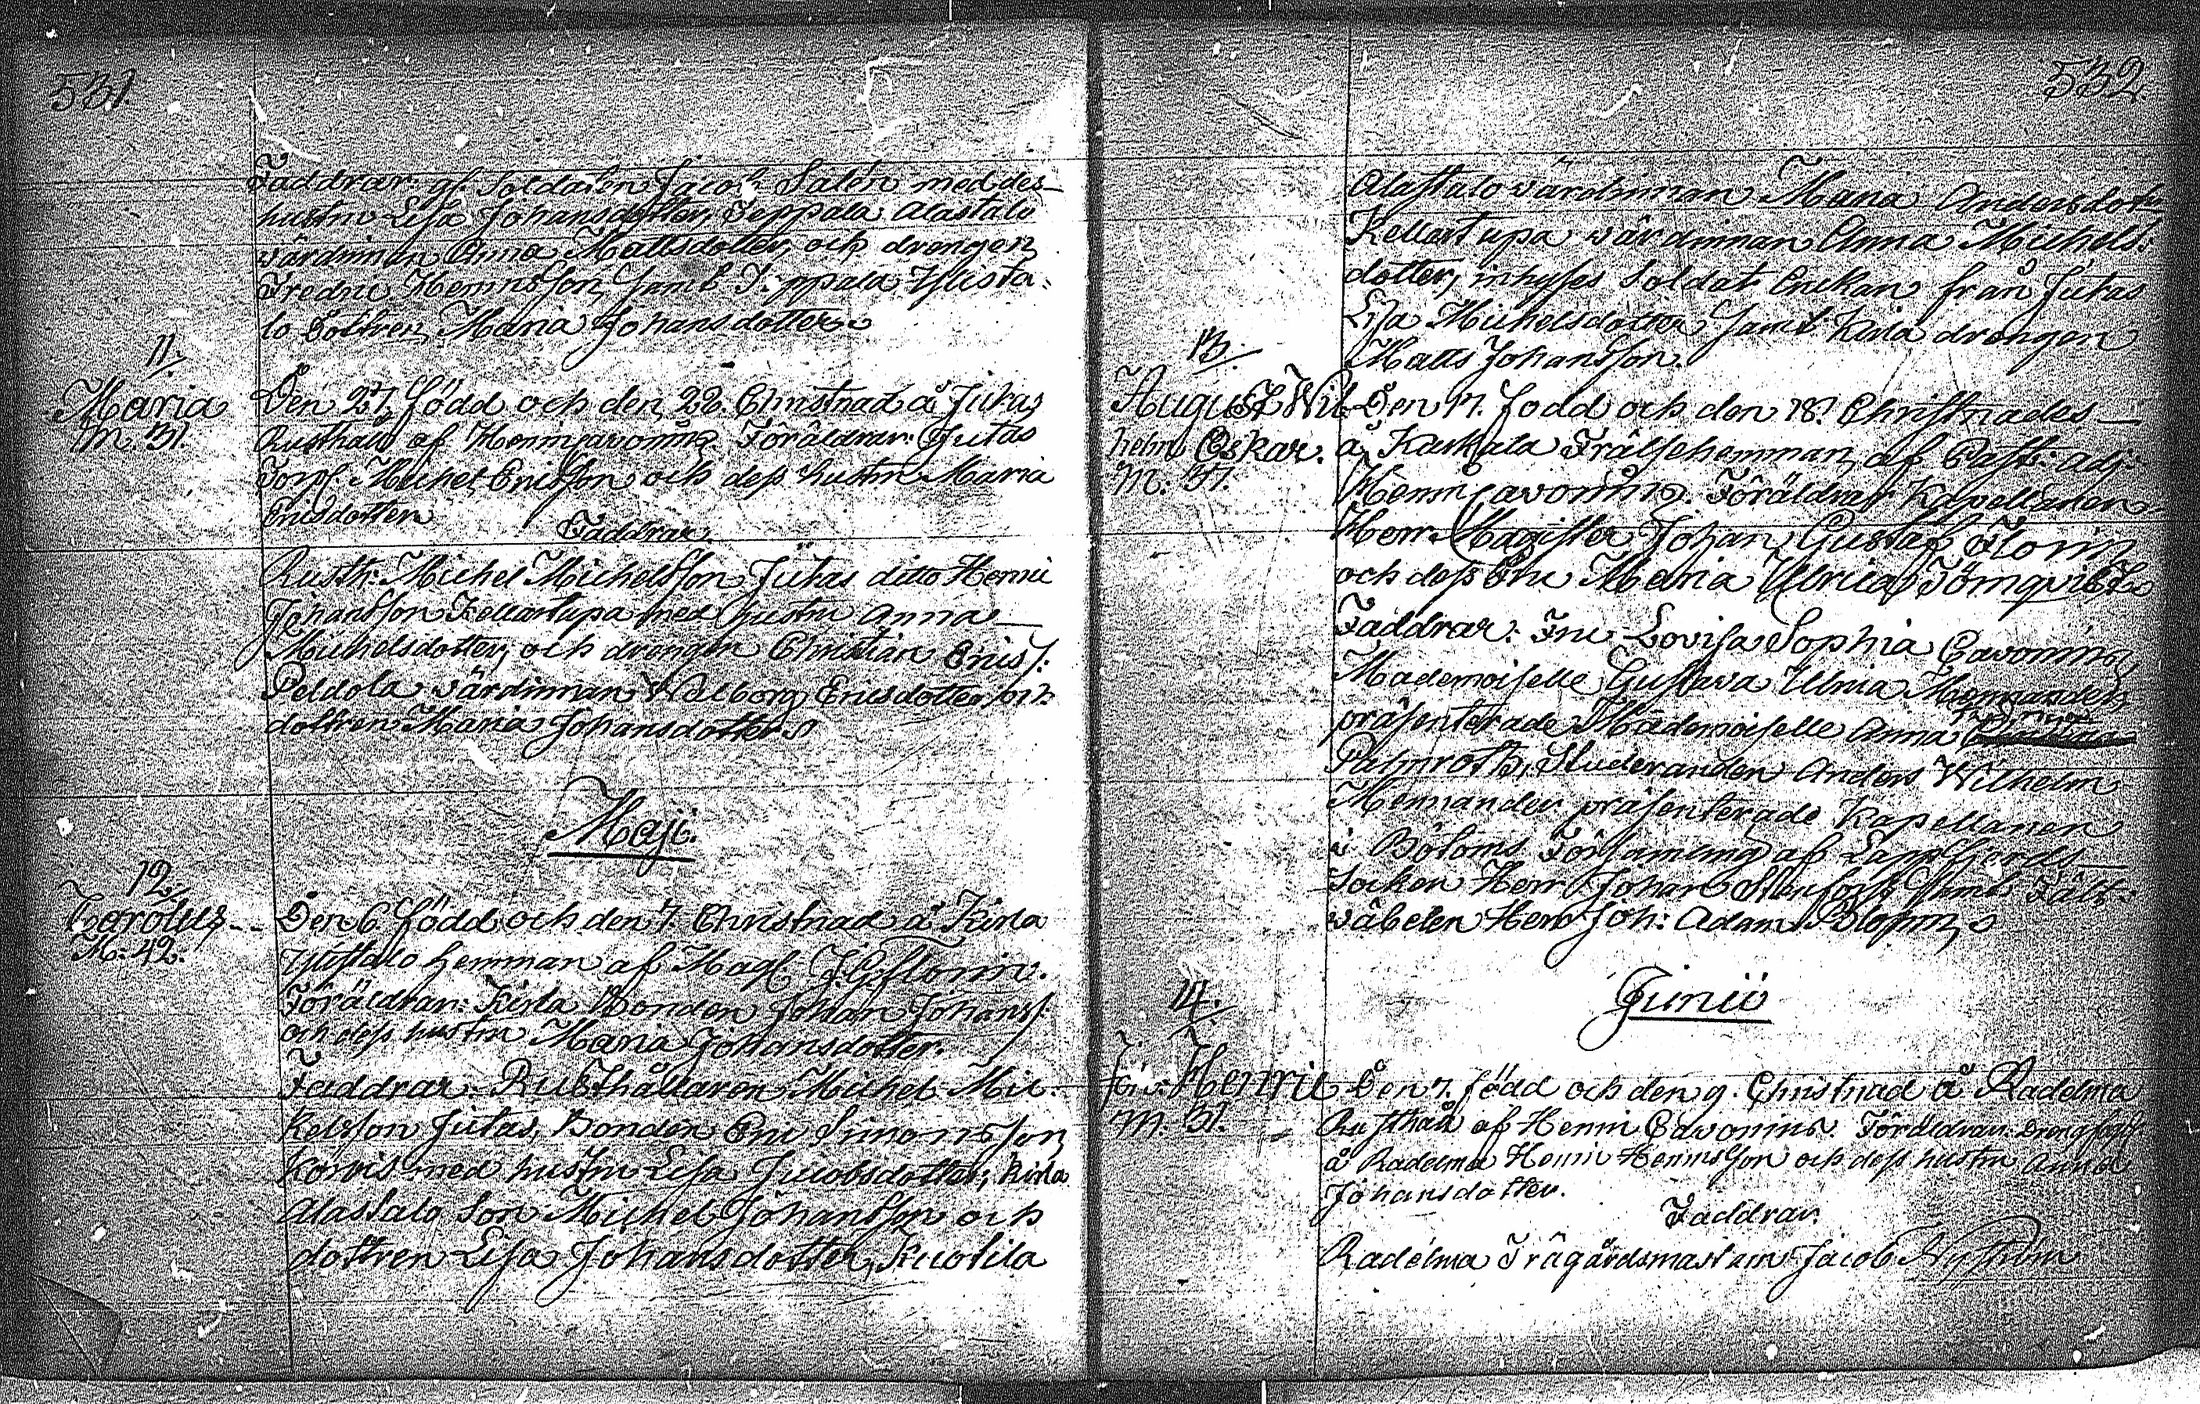 531.
Faddrar: gf. Soldaten Jacob Salén med des
hustru Lisa Johansdotter, Seppala Alastalo
värdinnan Anna Mattsdotter, och drengen
Fredric Henricsson, samt Seppala Ylista-
lo Dottren Maria Johansdotter
11.
Maria
M. 31.
Den 27. född och den 28. Christnad å Jutas
Rusthåll af Henric Cavonius. Föräldrar: Jutas
Torp. Michel Ericsson och dess hustru Maria
Ericsdotter
Faddrar.
Rusth: Michel Michelsson Jutas ditto Henric
Johansson Kellartupa med hustru Anna
Michelsdotter, och drengen Christian Erics:
Peldola värdinnan Walborg Ericsdotter och
dottren Maria Johansdotter
Maji.
12.
Carolus
M: 42.
Den 6. född och den 7. Christnad å Kirla
Ylistalo hemman af Mag. J. G. Florin.
Föräldrar: Kirla Bonden Johan Johanss:
och dess hustru Maria Johansdotter.
Faddrar: Rusthållaren Michel Mic-
kelsson Jutas, Bonden Eric Simonsson
Korvis med hustru Lisa Jacobsdotter, Kirla
Alastalo Son Michel Johansson och
dottren Lisa Johansdotter, Kuotila
532.
Alastalo värdinnan Maria Andersdotter
Kellartupa värdinnan Anna Michels-
dotter, inhyses Soldat Enkan från Jutas
Lisa Michelsdotter samt Kirla drengen
Matts Johansson.
13.
August Wil-
helm Oskar.
M. 37.
Den 17. född och den 18. Christnades
å Kaskala Frälsehemman af Past: adj:
Henric Cavonius. Föräldrar Kapellanen
Herr Magister Johan Gustaf Florin
och dess Fru Maria Ulrica Törnqvist
Faddrar: Fru Lovisa Sophia Cavonius,
Mademoiselle Gustava Ulrica Mennander
präsenterade Mademoiselle Anna
Palmroth, Studeranden Anders Wilhelm
Mennander präsenterade Kapellanen
i Bötoms Församling af Lappfjerds
Socken Herr Johan Stenfors samt Fält-
väbelen Herr Joh: Adam Blohm
Junii
14.
Joh: Henric
M. 31.
Den 7. född och den 9. Christnad å Radelma
Rusthåll af Henric Cavonius. Föräldrar:
å Radelma Henric Henricsson och dess hustru Anna
Johansdotter.
Faddrar.
Radelma Trägårdsmästaren Jacob Nyström